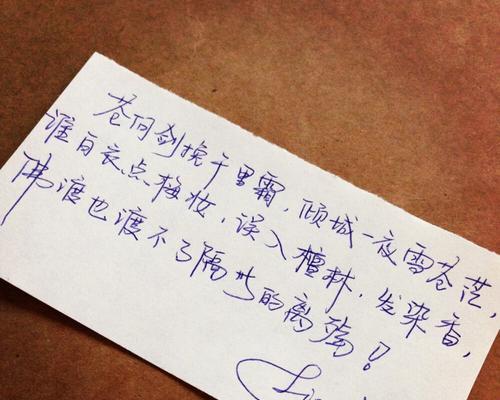 苍剑挽千里霜，倾城一夜雪苍茫，
谁白衣点梅妆，误入檀林，发染香，
佛渡也渡不了隔世的离殇！